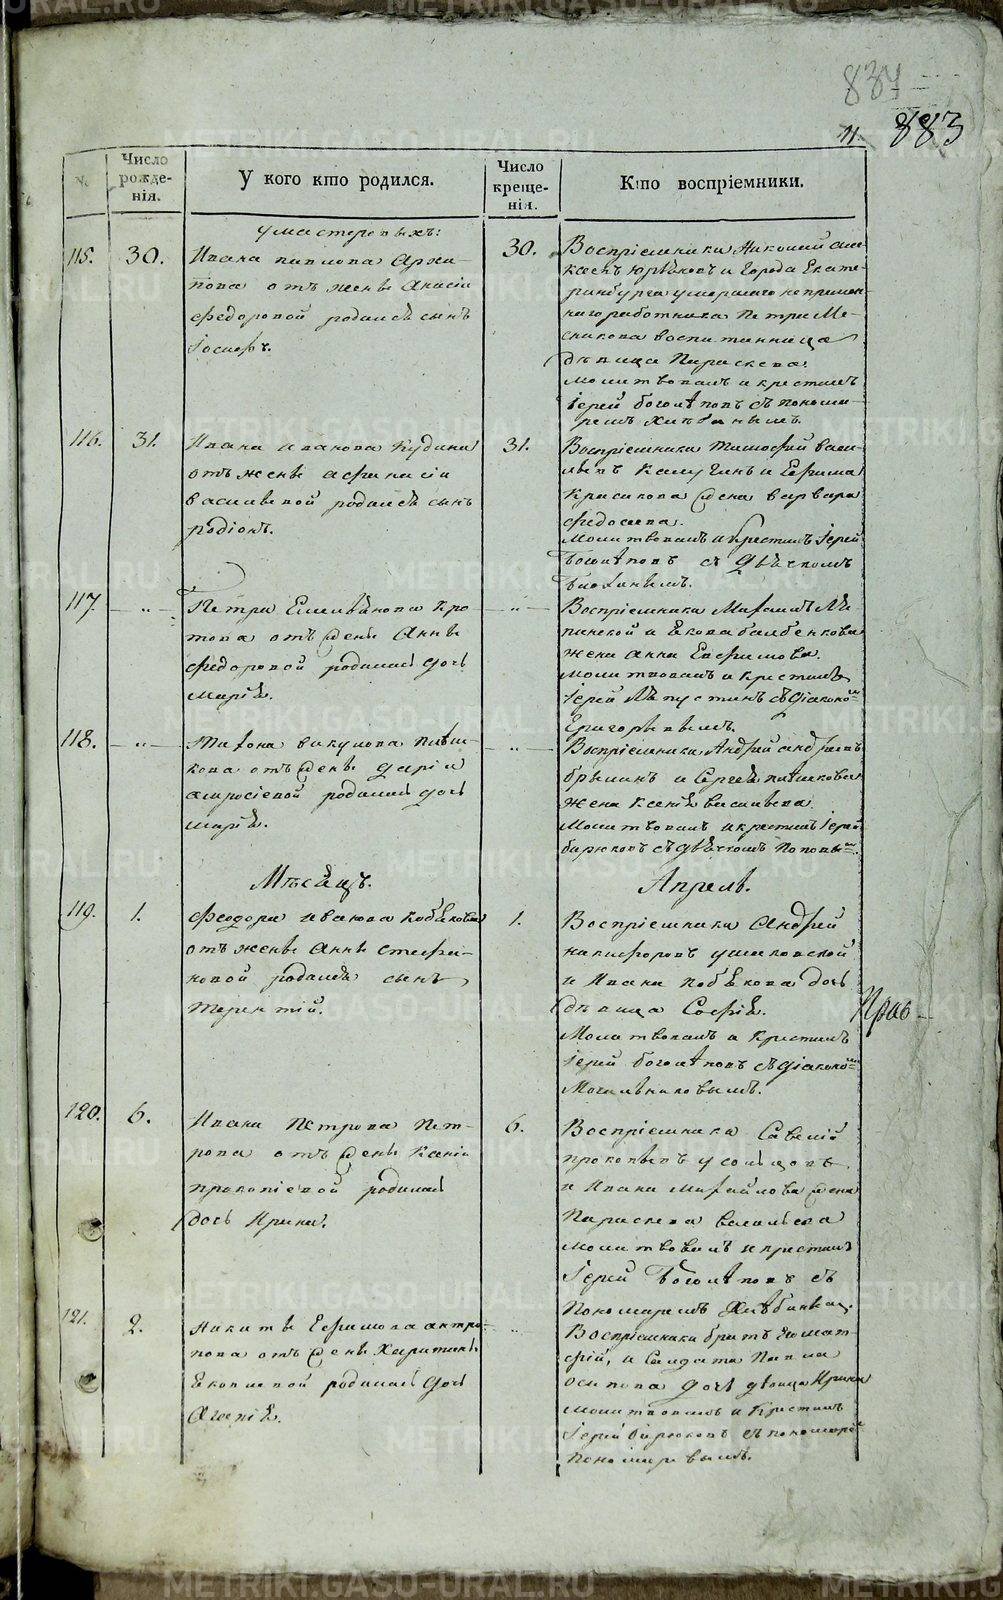 834
11. 883
№
Число рожде-нія.
У кого кто родился.
Число креще-нія.
Кто воспріемники.
умастеровыхъ:
115. 30.
Ивана павлова Архи-
пова отъ жены Анисіи
Федоровой родился сынъ
Іосифъ.
30.
Воспріемники Николай
и города Екате-
ринбурга умершаго непремен-
наго работника Петра Ме-
воспитанница
дѣвица Параскева.
молитвовалъ и крестилъ
Іерей боголѣповъ съ понома-
ремъ Хлѣбинымъ.
116. 31.
Ивана иванова Кудина
отъ жены афанасіи
васильевой родился сынъ
родіонъ.
31.
Воспріемники Тимофей васи-
льевъ Калугинъ и Ефима
Красикова жена варвара
федосеева.
Молитвовалъ и крестилъ Іерей
Боголѣповъ съ дьячкомъ
117. — „ —
Петра Емельянова Кро-
това отъ жены Анны
федоровой родилась дочь
Марія.
— „ —
Воспріемники Михаилъ Ля-
пинской и Якова балбенкова
жена анна Евфимова.
молитвовалъ и крестилъ
Іерей Ляпустинъ съ діакономъ
Григорьевымъ.
118. — „ —
Тихона викулова пьян-
кова отъ жены даріи
амросіевой родилась дочь
марія.
— „ —
Воспріемники Андрей андреевъ
брылинъ и Сергея пьянкова
жена Ксенія васильева.
Молитвовалъ и крестилъ Іерей
бирюковъ съ дьячкомъ Поповымъ.
Мѣсяцъ. Апрель.
119. 1.
Феодора иванова кобякова
отъ жены анны стефа-
новой родился сынъ
терентій.
1.
Воспріемники Андрей
никифоровъ ушаковской
и Ивана кобякова дочь
дѣвица Софія.
Молитвовалъ и Крестилъ
Іерей боголѣповъ съ діакономъ
Могильниковымъ.
Прао
120. 6.
Ивана Петрова Пет-
рова отъ жены Ксеніи
прокопіевой родилась
дочь Ирина.
6.
Воспріемники Савелій
прокопьевъ усольцовъ
и Ивана михайлова жена
Параскева васильева
молитвовалъ и крестилъ
Іерей Боголѣповъ съ
пономаремъ Хлѣбинымъ.
121. 2.
Никиты Ефимова антро-
пова отъ жены Харитины
Яковлевой родилась дочь
Агапія.
„
Воспріемники братъ Его мат-
фѣй, и Солдата Павла
осипова дочь дѣвица Ирина
молитвовалъ и Крестилъ
Іерей бирюковъ съ пономаремъ
Пономаревымъ.
METRIKI.GASO-URAL.RU